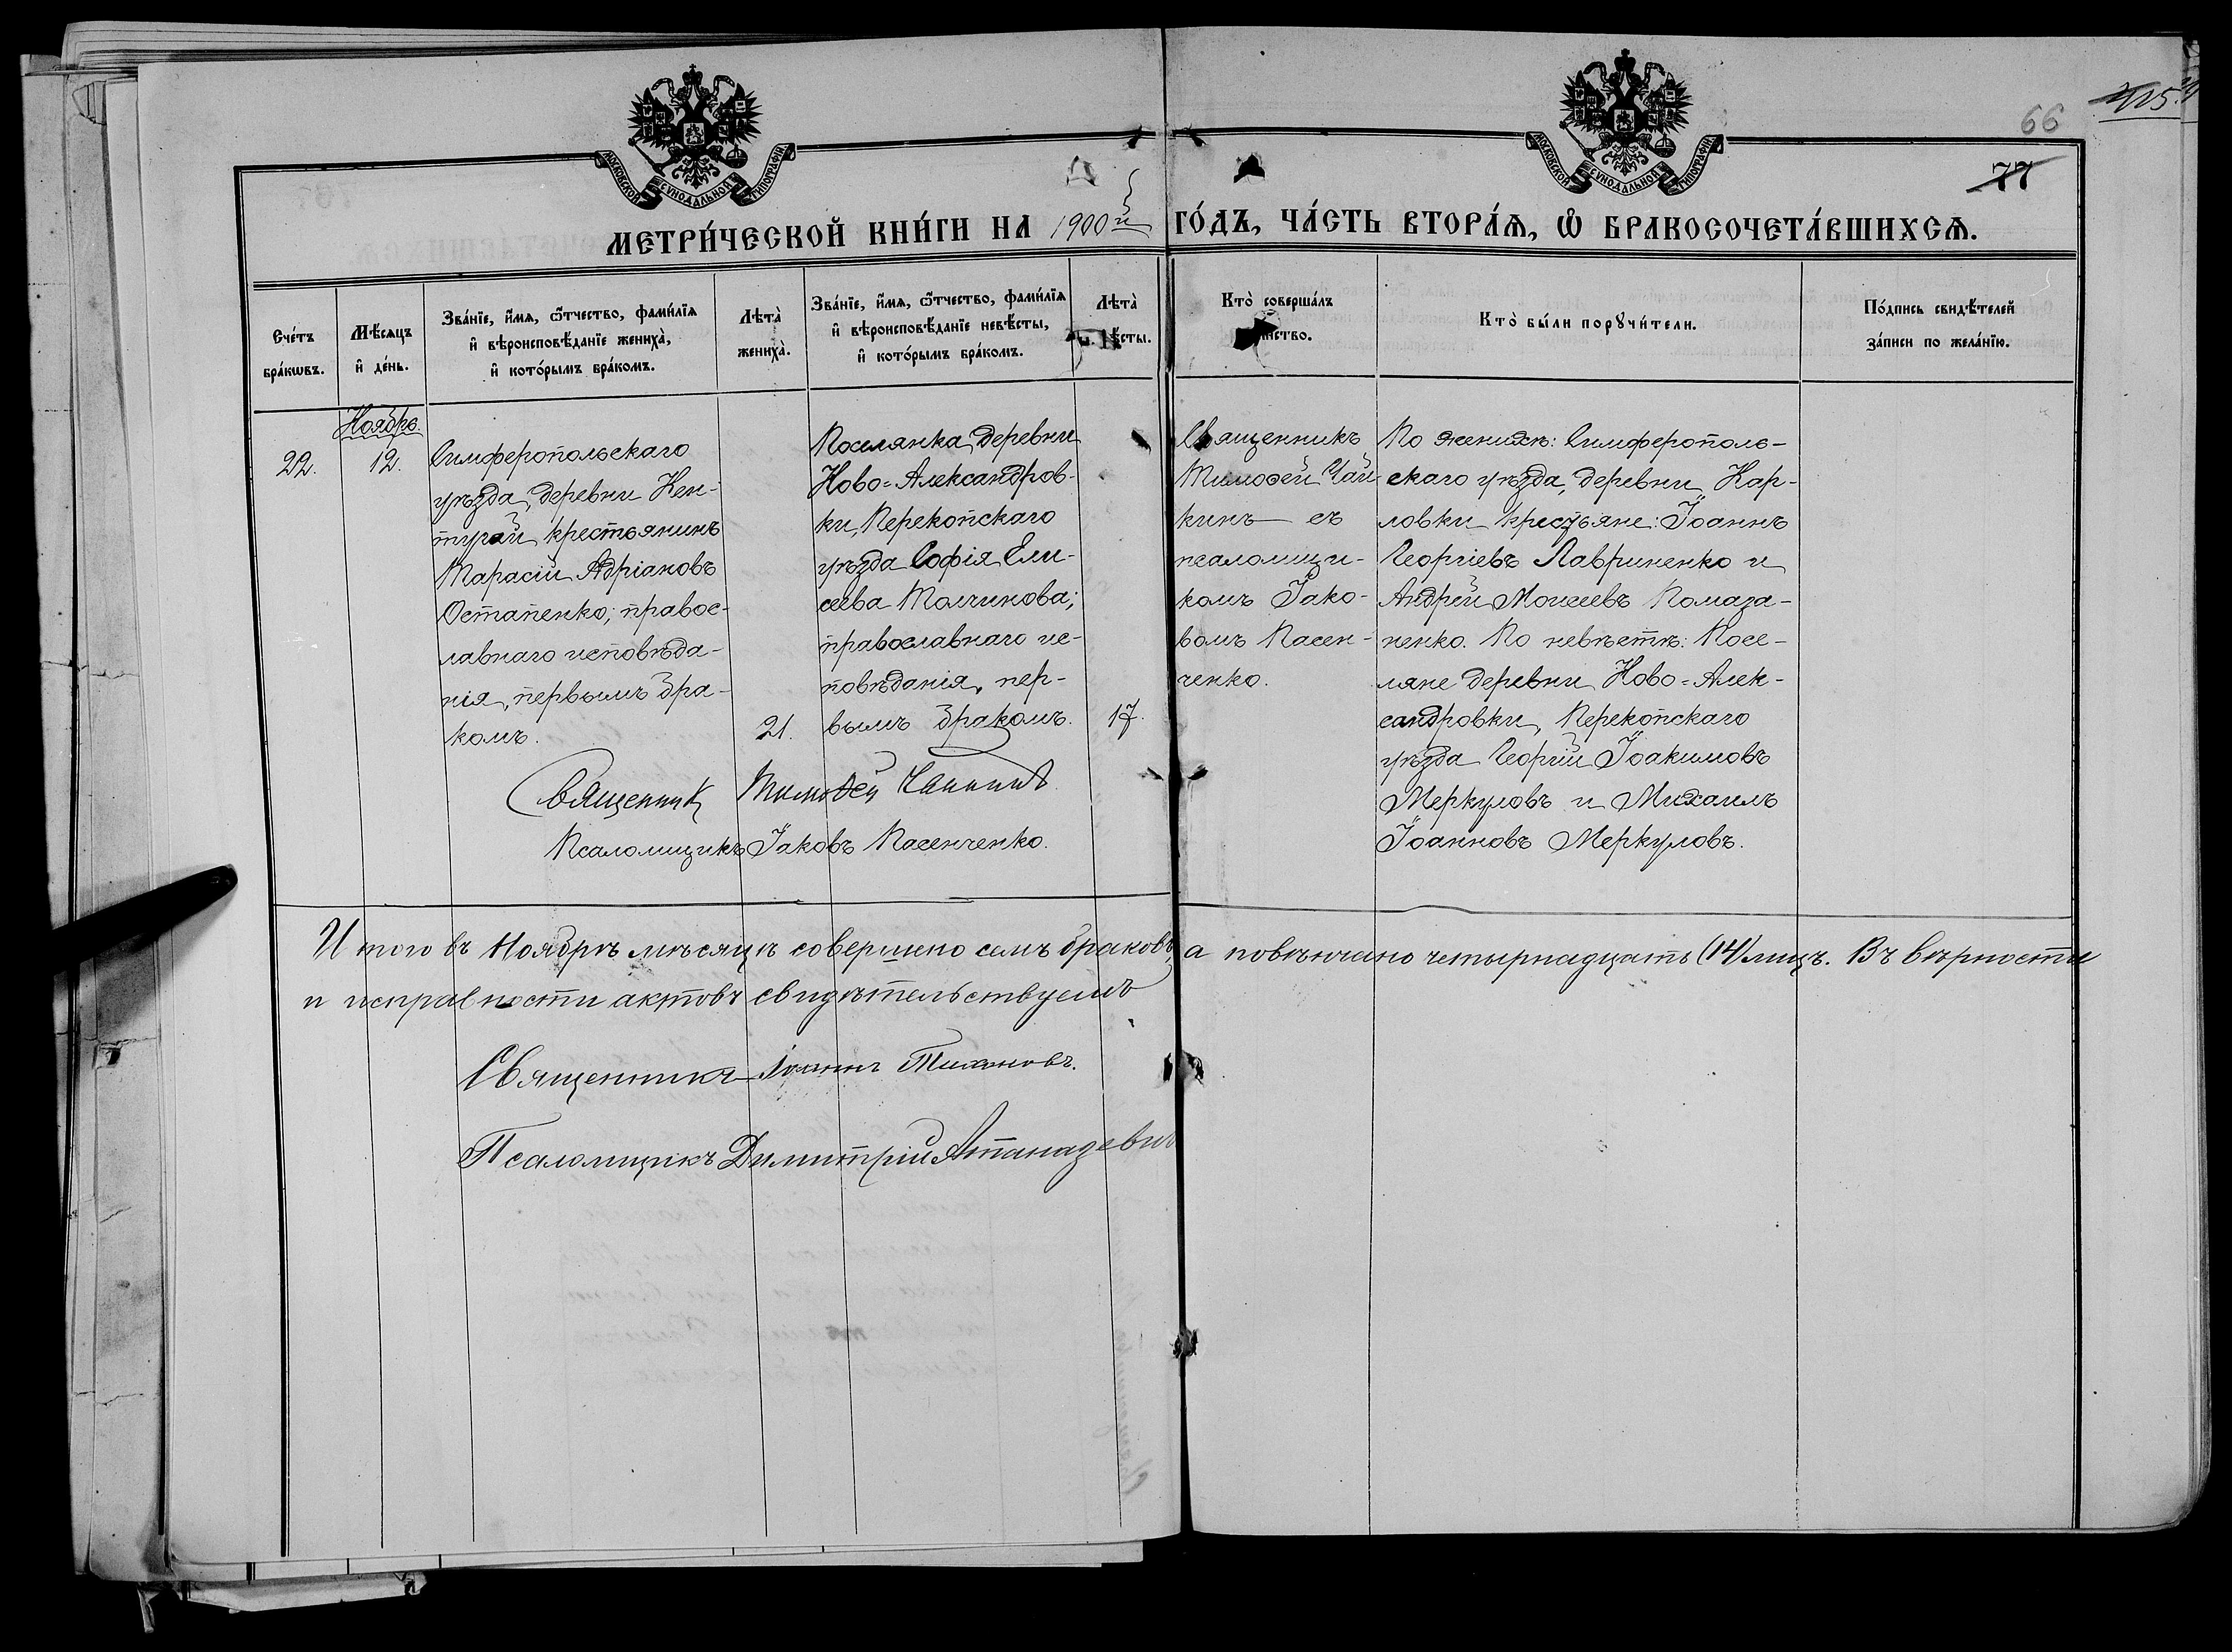 215.
66
77
МОСКОВСКОЙ СѴНОДАЛЬНОЙ ТИПОГРАФІИ
МОСКОВСКОЙ СѴНОДАЛЬНОЙ ТИПОГРАФІИ
МЕТРИ́ЧЕСКОЙ КНИ́ГИ НА 1900й ГО́ДЪ, ЧА́СТЬ ВТОРА́Ѧ, Ѽ БРАКОСОЧЕТА́ВШИХСѦ.
Сче́тъ
бра́кѡвъ.
Мѣ́сѧцъ
и҆ де́нь.
Зва́нїе, и҆́мѧ, ѻ҆́тчество, фами́лїѧ
и҆ вѣроисповѣ́данїе жениха̀,
и҆ кото́рымъ бра́комъ.
Лѣта̀
жениха̀.
Зва́нїе, и҆́мѧ, ѻ҆́тчество, фами́лїѧ
и҆ вѣроисповѣ́данїе невѣ́сты,
и҆ кото́рымъ бра́комъ.
Лѣта̀
невѣ́сты.
Кто̀ соверша́лъ
таинство.
Кто̀ бы́ли порꙋчи́тели.
По́дпись свидѣ́телей
за́писи по жела́нїю.
Ноябрь.
22.
12.
Симферопольскаго
уѣзда, деревни Кен-
тугай крестьянинъ
Тарасій Адріановъ
Остапенко; правос-
лавнаго исповѣда-
нія, первымъ бра-
комъ.
21.
Поселянка деревни
Ново-Александров-
ки, Перекопскаго
уѣзда Софія Ели-
сеева Толчинова;
православнаго ис-
повѣданія, пер-
вымъ бракомъ.
17.
Священникъ
Тимоѳей Чай-
кинъ съ
псаломщи-
комъ Іако-
вомъ Пасен-
ченко.
По женихѣ: Симферополь-
скаго уѣзда, деревни Кар-
ловки крестьяне: Іоаннъ
Георгіевъ Лавриненко и
Андрей Моисеевъ Помаза-
ненко. По невѣстѣ: Посе-
ляне деревни Ново-Алек-
сандровки, Перекопскаго
уѣзда Георгій Іоакимовъ
Меркуловъ и Михаилъ
Іоанновъ Меркуловъ.
Священник Тимоѳей Чайкинъ
Псаломщикъ Іаковъ Пасенченко.
Итого въ Ноябрѣ мѣсяцѣ совершено семъ браковъ, а повѣнчано четырнадцать (14) лицъ. Въ вѣрности
и исправности актовъ свидѣтельствуемъ
Священникъ Іоаннъ Тихановъ.
Псаломщикъ Димитрій Атаназевич